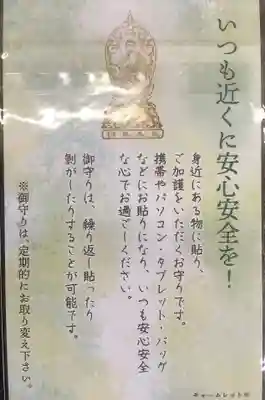 いつも近くに安心安全を!
身近にある物に貼り、
ご加護をいただくお守りです。
携帯やパソコン・タブレット・バッグ
などにお貼りになり、いつも安心安全
な心でお過ごしください。
御守りは、繰り返し貼ったり
剝がしたりすることが可能です。
※御守りは、定期的にお取り変え下さい。